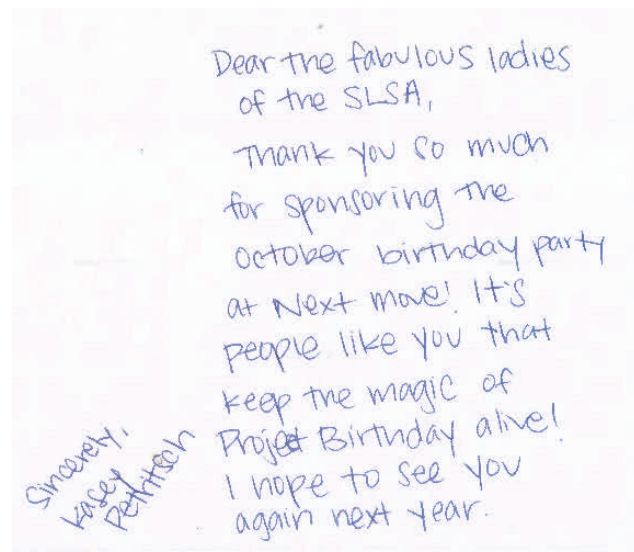 Dear the fabulous ladies
of the SLSA,
Thank you so much
for sponsoring the
october birthday party
at Next move! It's
people like you that
keep the magic of
Project Birthday alive!
I hope to see you
again next year.
Sincerely,
Kasey
Pethtsch